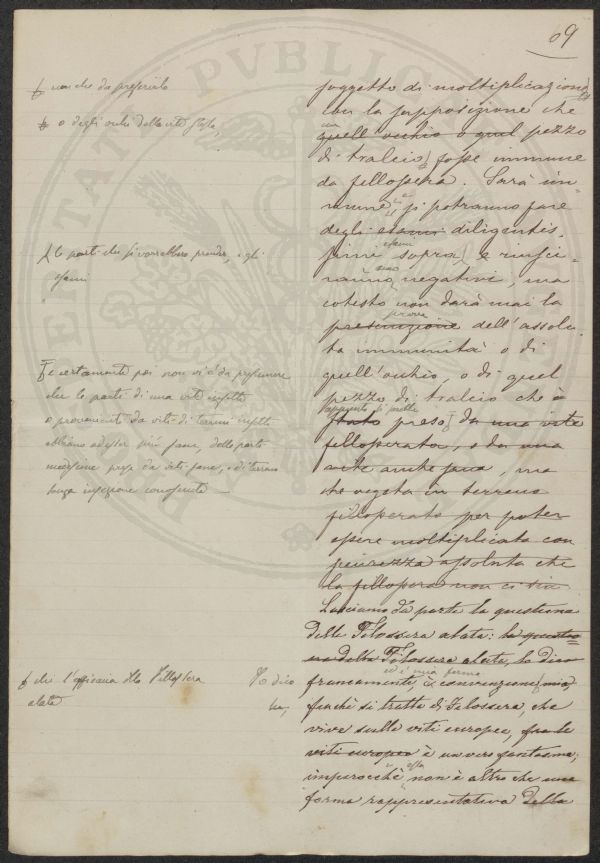 69
soggetto di moltiplicazione
con la supposizione che
quell'occhio o quel pezzo
di tralcio fosse immune
da fillossera. Sarà im-
mune, si potranno fare
degli esami diligentis-
esami
simi sopra e riusci-
ranno negativi, ma
cotesto non darà mai la
prova
presunzione dell'assolu-
ta immunità o di
quell'occhio, o di quel
pezzo di tralcio che è
appunto si mette
stato preso da una vite
fillosserata, o da una
vite anche sana, ma
che vegeta in terreno
fillosserato per poter
essere moltiplicata con
sicurezza assoluta che
la fillossera non ci sia
Lasciamo da parte la questione
della Filossera alata: la questio-
ne della Filossera alata, lo dico
francamente, è convinzione mia,
finchè si tratta di filossera, che
vive sulle viti europee, fra le
viti europee è un vero fantasma;
essa
imperocchè non è altro che una
forma rappresentativa della
non che da
o degli occhi della vite stessa,
parti che si vorrebbero prendere, e gli
esami
e certamente poi non vi è da presumere
che le parti di una vite infetta
o provenienti da viti di terreni infetti
abbiano ad esser più sane, delle parti
medesime prese da viti sane, e di terreno
senza infezione conosciuta
che l'efficacia della Fillossera
alata
Io dico